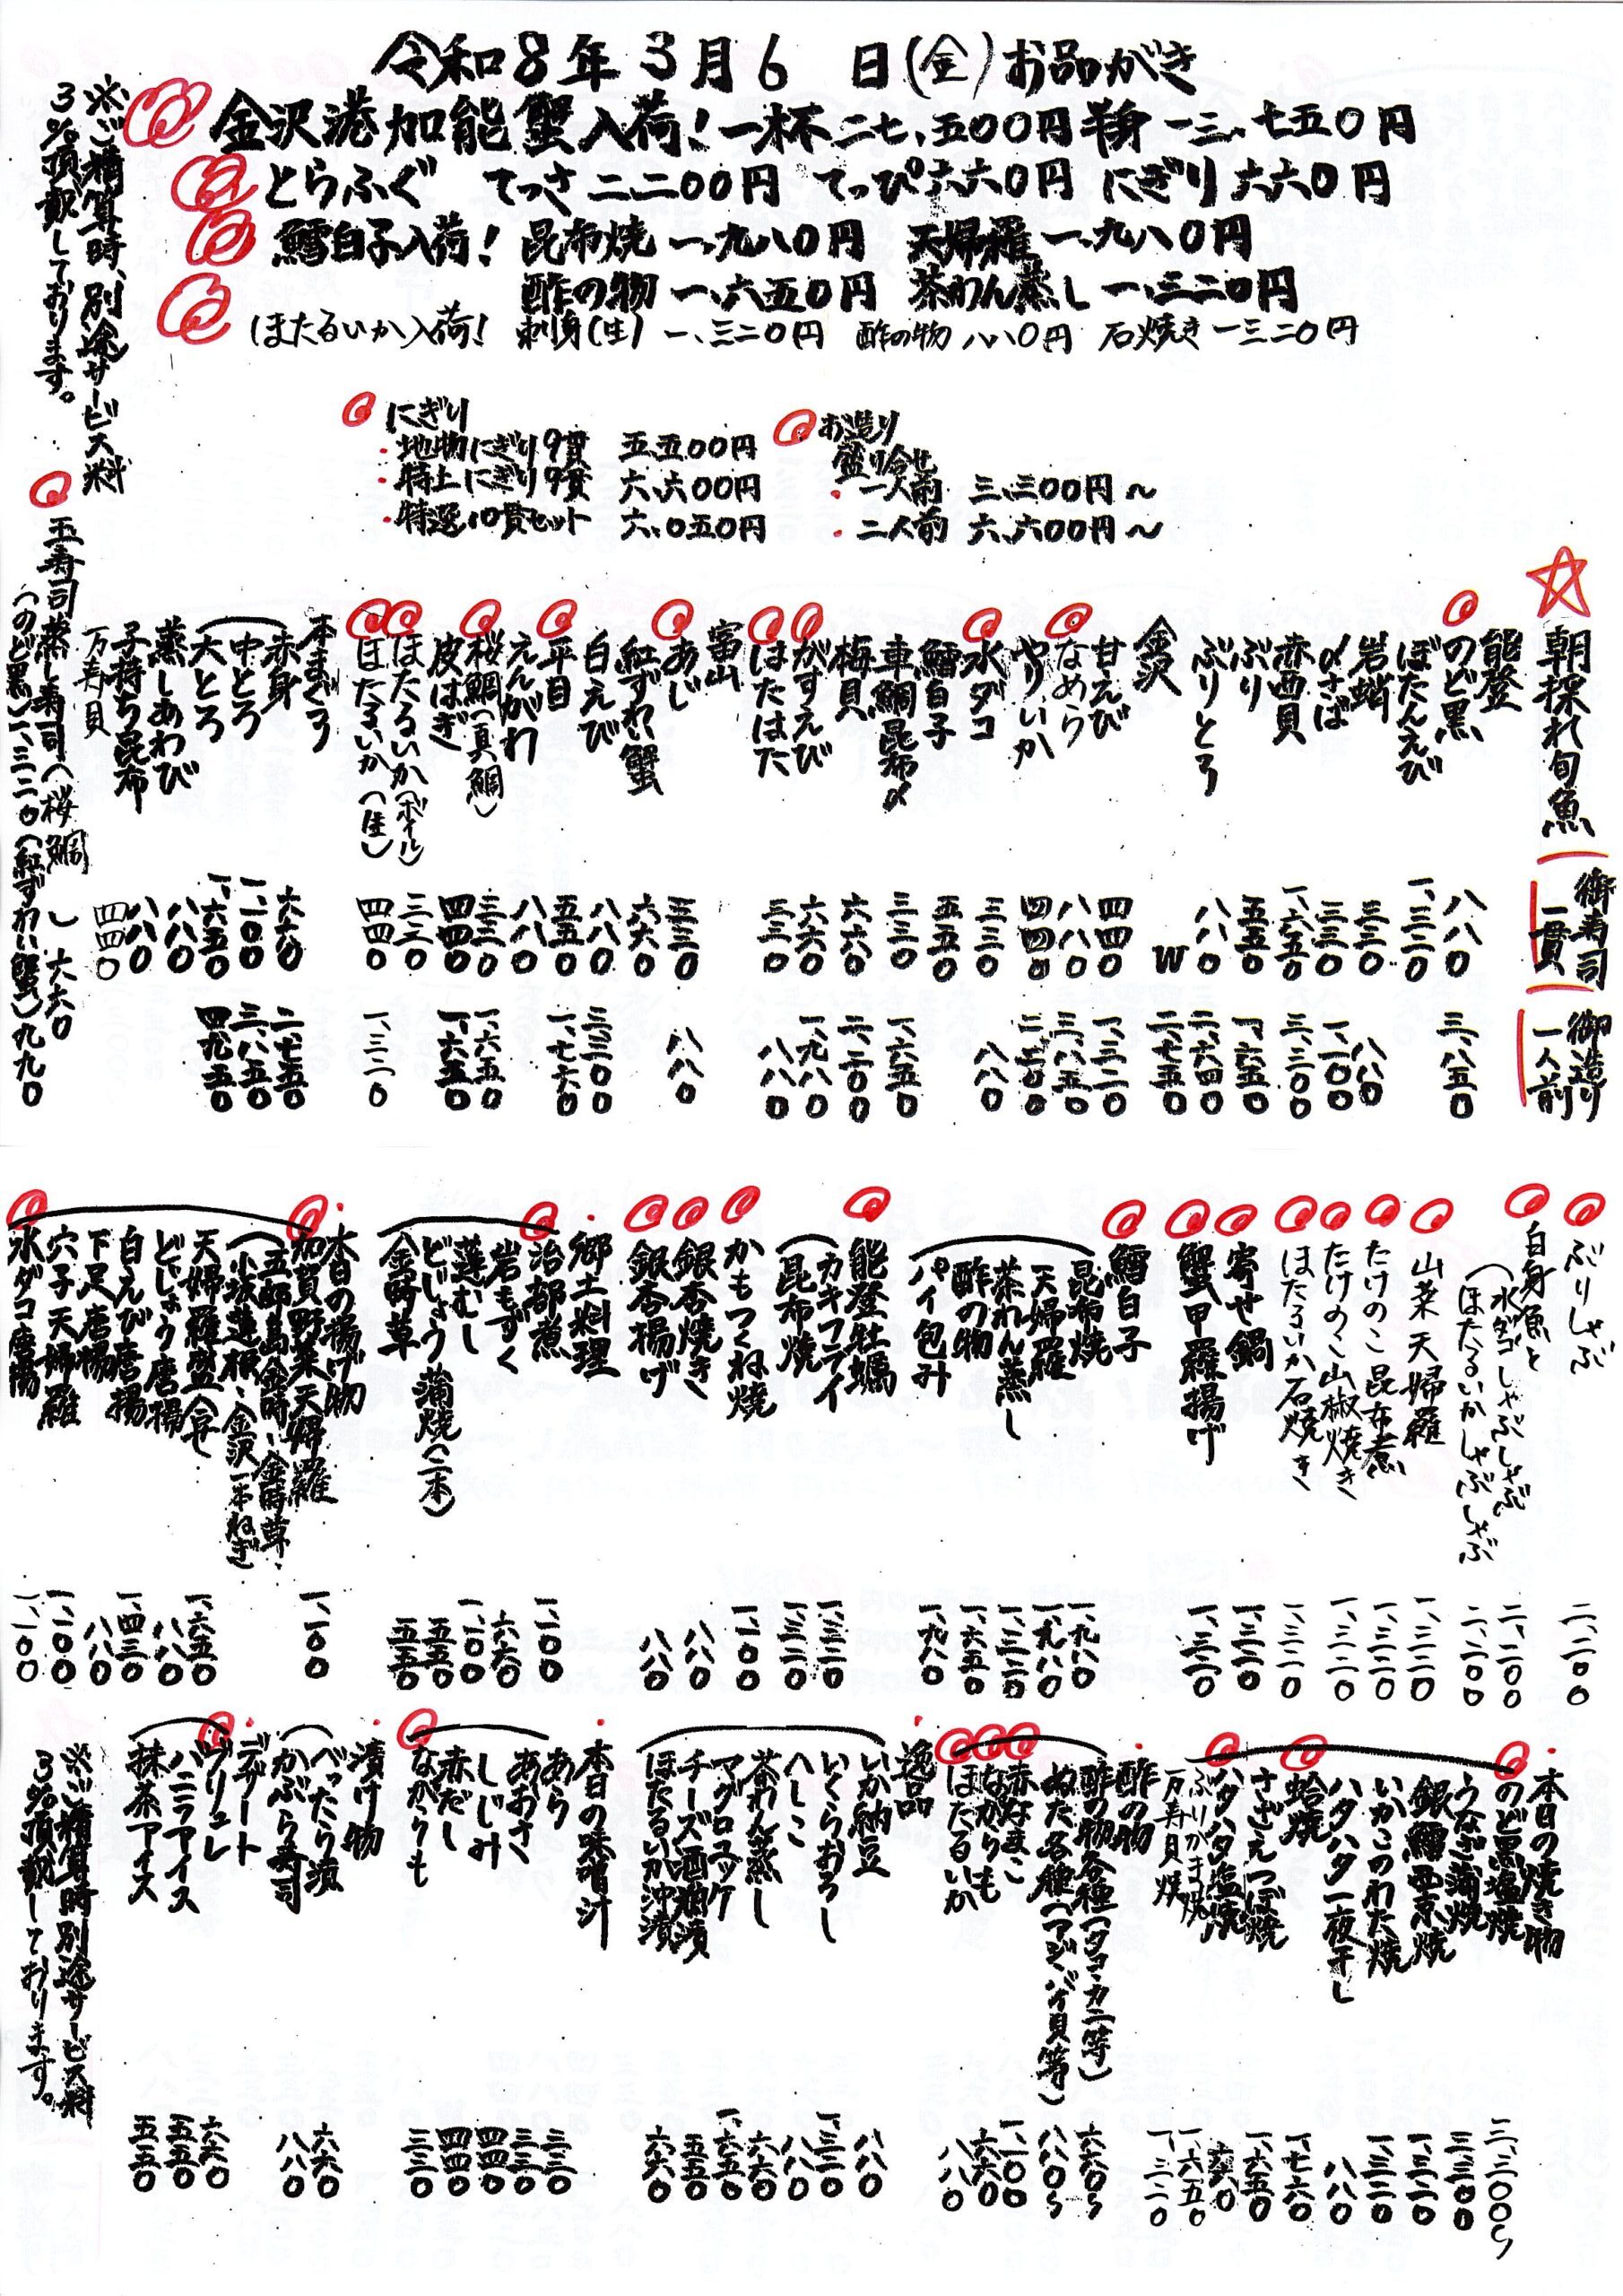 令和8年3月6日(金)お品がき
金沢港加能蟹入荷!一杯二七、五00円 半身一三、七五0円
とらふぐ てっさ二二00円 てっぴ六六0円 にぎり六六0円
鱈白子入荷! 昆布焼一、九八0円 天婦羅一、九八0円
酢の物一、六五0円 茶わん蒸し一、三二0円
ほたるいか入荷! 刺身(生)一、三二0円 酢の物八八0円 石焼き一三二0円
※ご精算時、別途サービス料
3%頂戴しております。
にぎり
・地物にぎり9貫 五、五00円
・特上にぎり9貫 六、六00円
・特選10貫セット 六、0五0円
お造り
盛り合せ
・一人前 三、三00円〜
・二人前 六、六00円〜
☆朝採れ旬魚 御寿司一貫 御造り一人前
能登
のど黒 八八0 三、八五0
ぼたんえび 一、三二0
岩蛸 三三0 八八0
〆さば 三三0 一、一00
赤西貝 一、六五0 三、三00
ぶり 五五0
ぶりとろ 八八0
金沢
甘えび 四四0 一、三二0
なめら 八八0 三、八五0
やりいか 四四0
水ダコ 三三0 八八0
鱈白子 五五0
車鯛昆布〆 三三0 一、六五0
梅貝 六六0 二、二00
がすえび 六六0 一、九八0
はたはた 三三0 八八0
富山
あじ 三三0 八八0
紅ずわい蟹 六六0
白えび 八八0 三、三00
平目 五五0 一、七六0
えんがわ 八八0
桜鯛(真鯛) 三三0 一、六五0
皮はぎ 四四0 一、六五0
ほたるいか(ボイル) 三三0
ほたるいか(生) 四四0 一、三二0
本まぐろ
赤身 六六0 二、七五0
中とろ 一、一00 三、八五0
大とろ 一、六五0 四、九五0
蒸しあわび 八八0
子持ち昆布 八八0
万寿貝 四四0
玉寿司蒸し寿司(桜鯛)六六0
(のど黒)一、三二0(紅ずわい蟹)九九0
ぶりしゃぶ 二、二00
白身魚と
(水ダコしゃぶしゃぶ 二、二00
(ほたるいかしゃぶしゃぶ 二、二00
山菜天婦羅 一、三二0
たけのこ昆布煮 一、三二0
たけのこ山椒焼き 一、三二0
ほたるいか石焼き 一、三二0
寄せ鍋 一、三二0
蟹甲羅揚げ 一、三二0
鱈白子
昆布焼 一、九八0
天婦羅 一、九八0
茶わん蒸し 一、三二0
酢の物 一、六五0
パイ包み 一、九八0
能登牡蠣
カキフライ 一、三二0
昆布焼 一、三二0
かもつくね焼 一、一00
銀杏焼き 八八0
銀杏揚げ 八八0
郷土料理
治部煮 一、一00
岩もずく 六六0
蓮むし 一、一00
どじょう蒲焼(二本) 五五0
金時草 五五0
本日の揚げ物
加賀野菜天婦羅 一、一00
(五郎島金時、金時草、
小坂蓮根、金沢一本ねぎ
天婦羅盛合せ 一、六五0
どじょう唐揚 八八0
白えび唐揚 一、四三0
下足唐揚 八八0
穴子天婦羅 一、一00
水ダコ唐揚 一、一00
本日の焼き物
のど黒塩焼 三、三00〜
うなぎ蒲焼 三、三00
銀鱈西京焼 一、三二0
いかこのわた焼 一、三二0
ハタハタ一夜干し 八八0
蛤焼 一、七六0
さざえつぼ焼 一、六五0
ハタハタ塩焼 六六0
ぶりかま焼 一、六五0
万寿貝焼 一、三二0
酢の物
酢の物各種(タコ・カニ等) 六六0〜
ぬた各種(アジ・バイ貝等) 八八0〜
赤なまこ 一、一00
ながらも 六六0
ほたるいか 八八0
逸品
いか納豆 八八0
いくらおろし 一、三二0
へしこ 八八0
茶わん蒸し 六六0
マグロユッケ 一、六五0
チーズ酒粕漬 五五0
ほたるいか沖漬 六六0
本日の味噌汁
あら 三三0
あおさ 三三0
しじみ 四四0
赤だし 四四0
ながらも 三三0
漬け物
べったら漬 六六0
かぶら寿司 八八0
デザート
ブリュレ 六六0
バニラアイス 五五0
抹茶アイス 五五0
※ご精算時別途サービス料
3%頂戴しております。